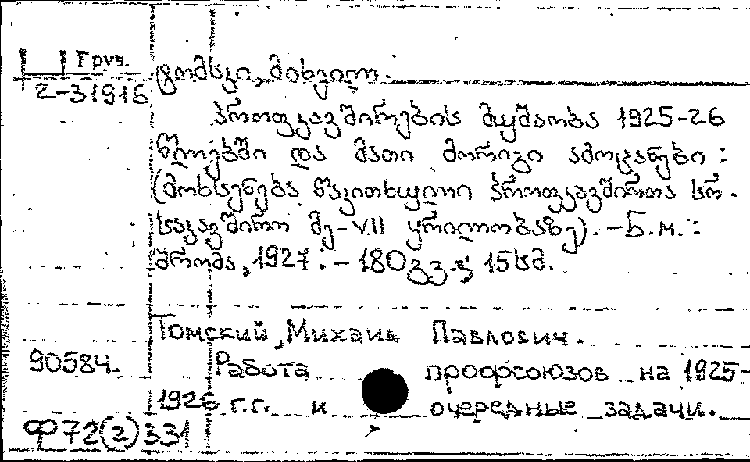 Груз.
2-31916
ტომსკი, მიხეილ.
პროფკავშირების მუშაობა 1925-26
წლებში და მათი მორიგი ამოცანები :
(მოხსენება წაკითხული პროფკავშირთა სრ.
საკავშირო მე-VII ყრილობაზე). – Б. м. :
შრომა, 1927. – 180 გვ. ; 15 სმ.
Томский, Михаил Павлович.
90584. Работа профсоюзов на 1925-
1926 г.г. и очередные задачи.
Ф72(2)331